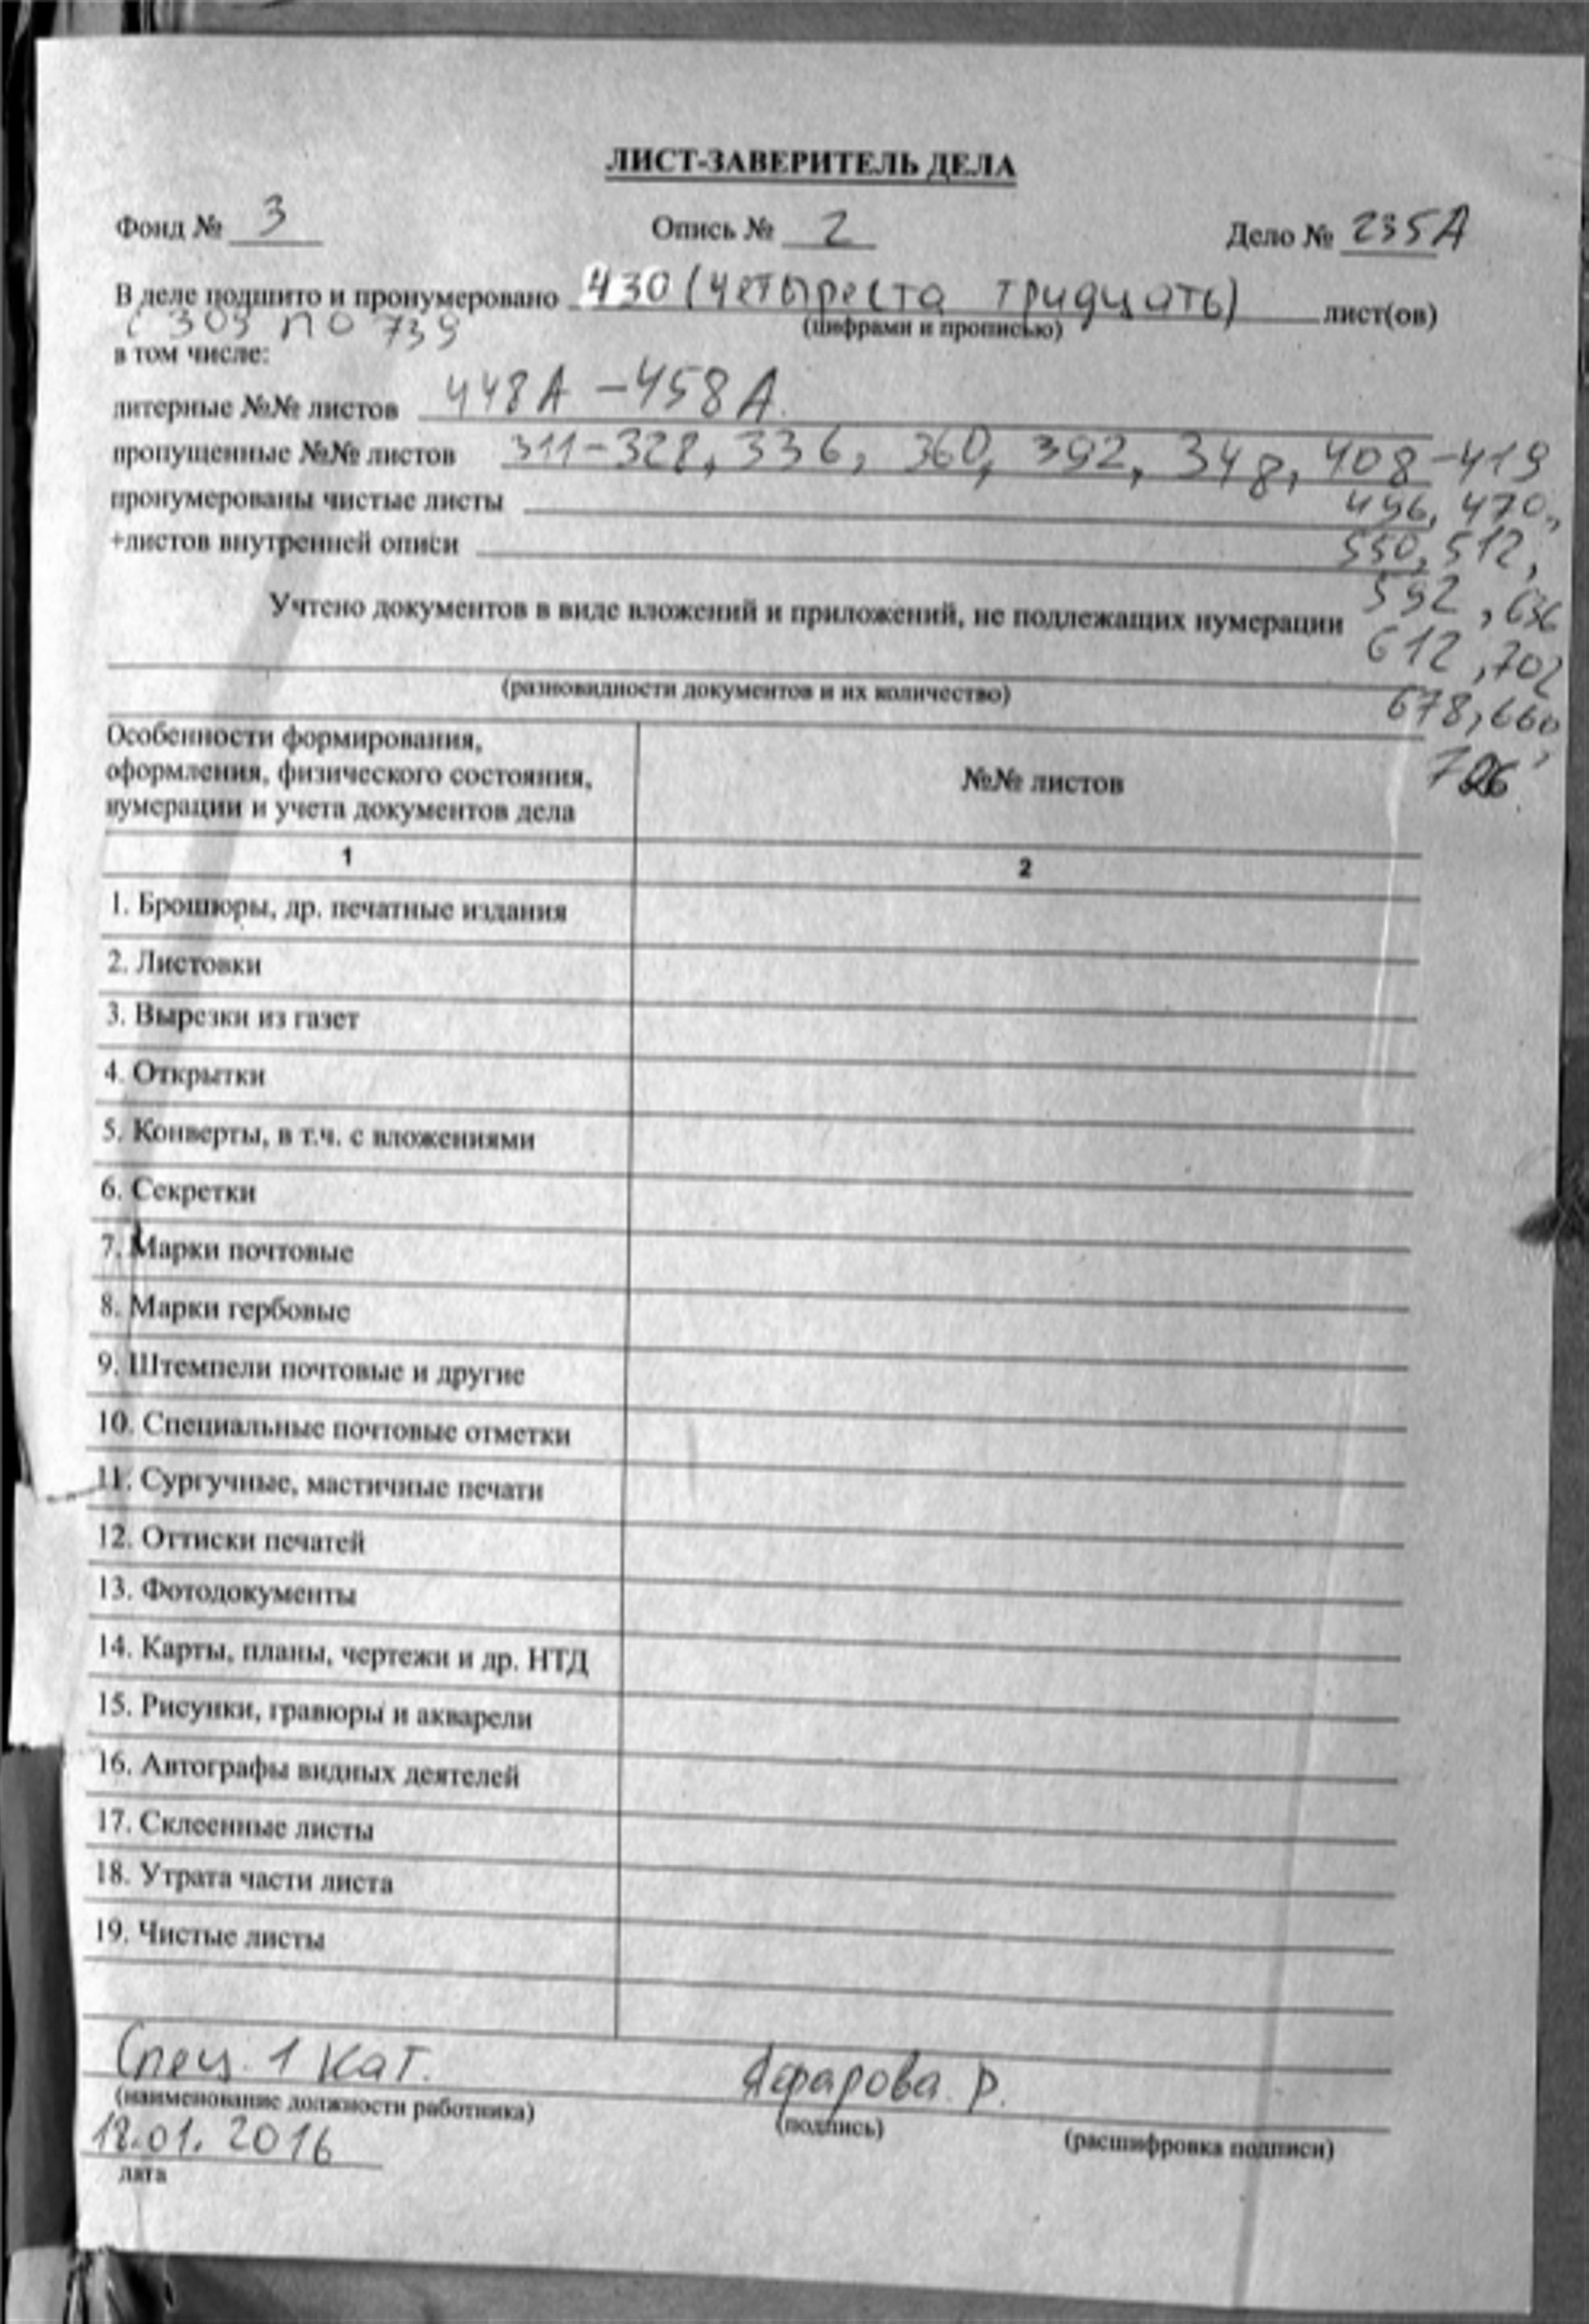 ЛИСТ-ЗАВЕРИТЕЛЬ ДЕЛА
Фонд № 3 Опись № 2 Дело № 235А
В деле подшито и пронумеровано 430 (четыреста тридцать) лист(ов)
(цифрами и прописью)
с 309 по 739
в том числе:
литерные №№ листов 448А – 458А.
пропущенные №№ листов 311-328, 336, 360, 392, 348, 408-419
пронумерованы чистые листы 496, 470,
+листов внутренней описи 550, 512,
592, 636
Учтено документов в виде вложений и приложений, не подлежащих нумерации
612, 702
(разновидности документов и их количество)
678, 660,
Особенности формирования,
оформления, физического состояния,
нумерации и учета документов дела
№№ листов
1 2
1. Брошюры, др. печатные издания
2. Листовки
3. Вырезки из газет
4. Открытки
5. Конверты, в т.ч. с вложениями
6. Секретки
7. Марки почтовые
8. Марки гербовые
9. Штемпели почтовые и другие
10. Специальные почтовые отметки
11. Сургучные, мастичные печати
12. Оттиски печатей
13. Фотодокументы
14. Карты, планы, чертежи и др. НТД
15. Рисунки, гравюры и акварели
16. Автографы видных деятелей
17. Склеенные листы
18. Утрата части листа
19. Чистые листы
Спец. 1 кат. Р.
(наименование должности работника) (подпись) (расшифровка подписи)
18.01.2016
дата